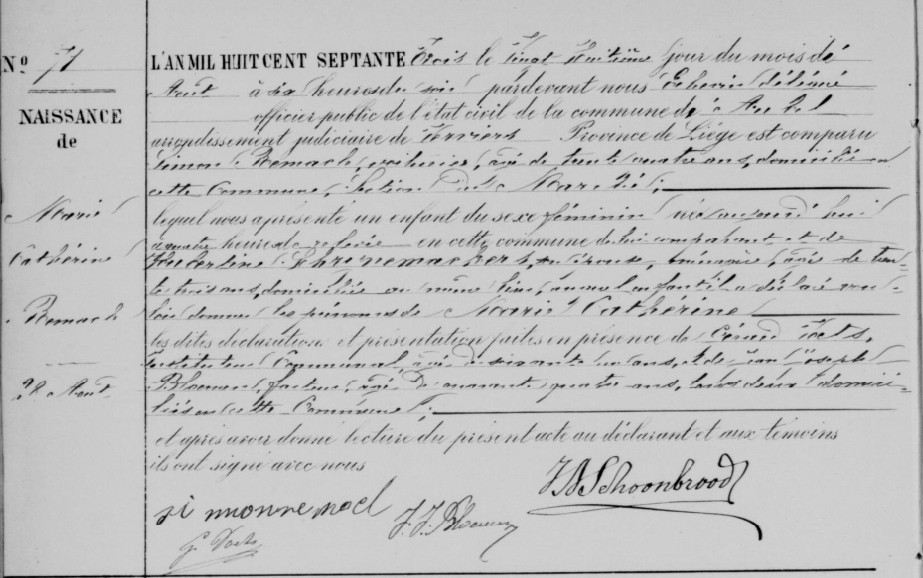 Nº 71
NAISSANCE
de
Marie
Cathérine
Remach
28 Août
L'AN MIL HUIT CENT SEPTANTE trois le vingt huitième jour du mois de
Août à six heures du soir pardevant nous Echevin délégué
officier public de l'état civil de la commune de Aubel
arrondissement judiciaire de Verviers Province de Liége est comparu
Simon Remach, voiturier, âgé de trente quatre ans, domicilié en
cette Commune, Section du Marché;
lequel nous a présenté un enfant du sexe féminin né aujourd'hui
à quatre heures de relevée en cette commune de lui comparant et de
Hubertine Schrynemackers, son épouse, ménagère, âgée de tren-
te trois ans, domiciliée au même lieu, auquel enfant il a déclaré vou-
loir donner les prénoms de Marie Cathérine
les dites déclaration et présentation faites en présence de Gérard
Instituteur Communal, âgé de soixante un ans, et de Jean Joseph
facteur, âgé de quarante quatre ans, tous deux domici-
liés en cette Commune;
et après avoir donné lecture du présent acte au déclarant et aux témoins
ils ont signé avec nous
J N Schoonbrood
si
J. J.
G.